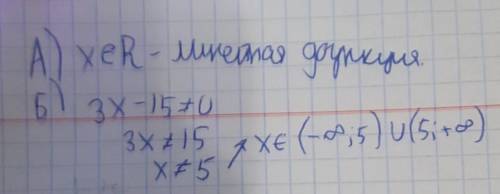 А) x∈R - линейная функция.
Б) 3x - 15 ≠ 0
3x ≠ 15
x ≠ 5 ↗ x∈ (-∞; 5) ∪ (5; +∞)